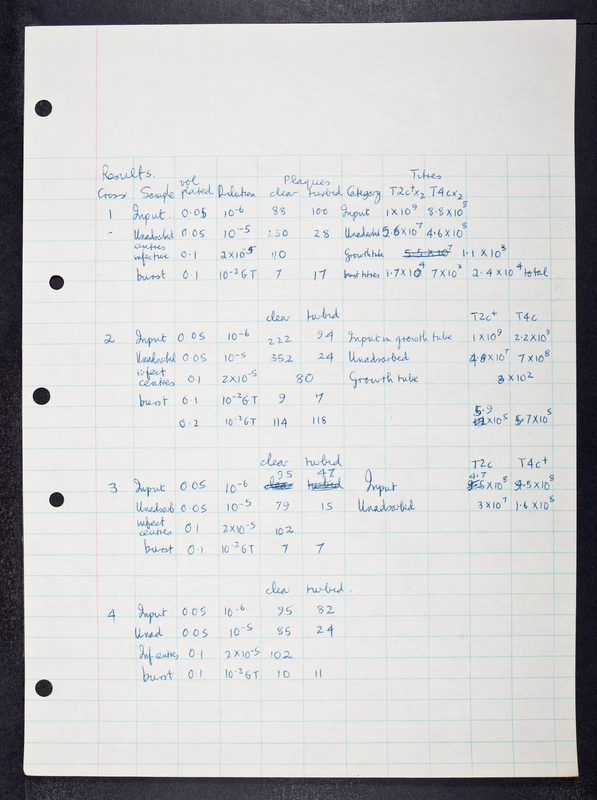 Results.
vol Plaques Titres
Cross Sample plated Dilution clear turbid Category T2c⁺x₂ T4cx₂
1 Input. 0.05 10⁻⁶ 88 100 Input 1×10⁹ 8.8×10⁸
- Unadsorbed 0.05 10⁻⁵ 230 28 Unadsorbed 5.6×10⁷ 4.6×10⁸
centres
infective 0.1 2×10⁻⁵ 110 Growth tube 5.5×10⁷ 1.1×10³
burst 0.1 10⁻²GT 7 17 burst titres 1.7×10⁴ 7×10³ 2.4×10⁴ total
clear turbid T2c⁺ T4c
2 Input 0.05 10⁻⁶ 222 94 Input in growth tube 1×10⁹ 2.2×10⁹
Unadsorbed 0.05 10⁻⁵ 352 24 Unadsorbed 4.8×10⁷ 7×10⁸
infect
centres 0.1 2×10⁻⁵ 80 Growth tube 8×10²
burst 0.1 10⁻²GT 9 7
5.9
0.2 10⁻²GT 114 118 ×10⁵ 5.7×10⁵
clear turbid T2c T4c⁺
95 47 4.7
3 Input 0.05 10⁻⁶ clear turbid Input ×10⁸ 9.5×10⁸
Unadsorb 0.05 10⁻⁵ 79 15 Unadsorbed 3×10⁷ 1.6×10⁸
infect
centres 0.1 2×10⁻⁵ 102
burst 0.1 10⁻²GT 7 7
clear turbid.
4 Input 0.05 10⁻⁶ 95 82
Unad 0.05 10⁻⁵ 85 24
Inf centres 0.1 2×10⁻⁵ 102
burst 0.1 10⁻²GT 10 11